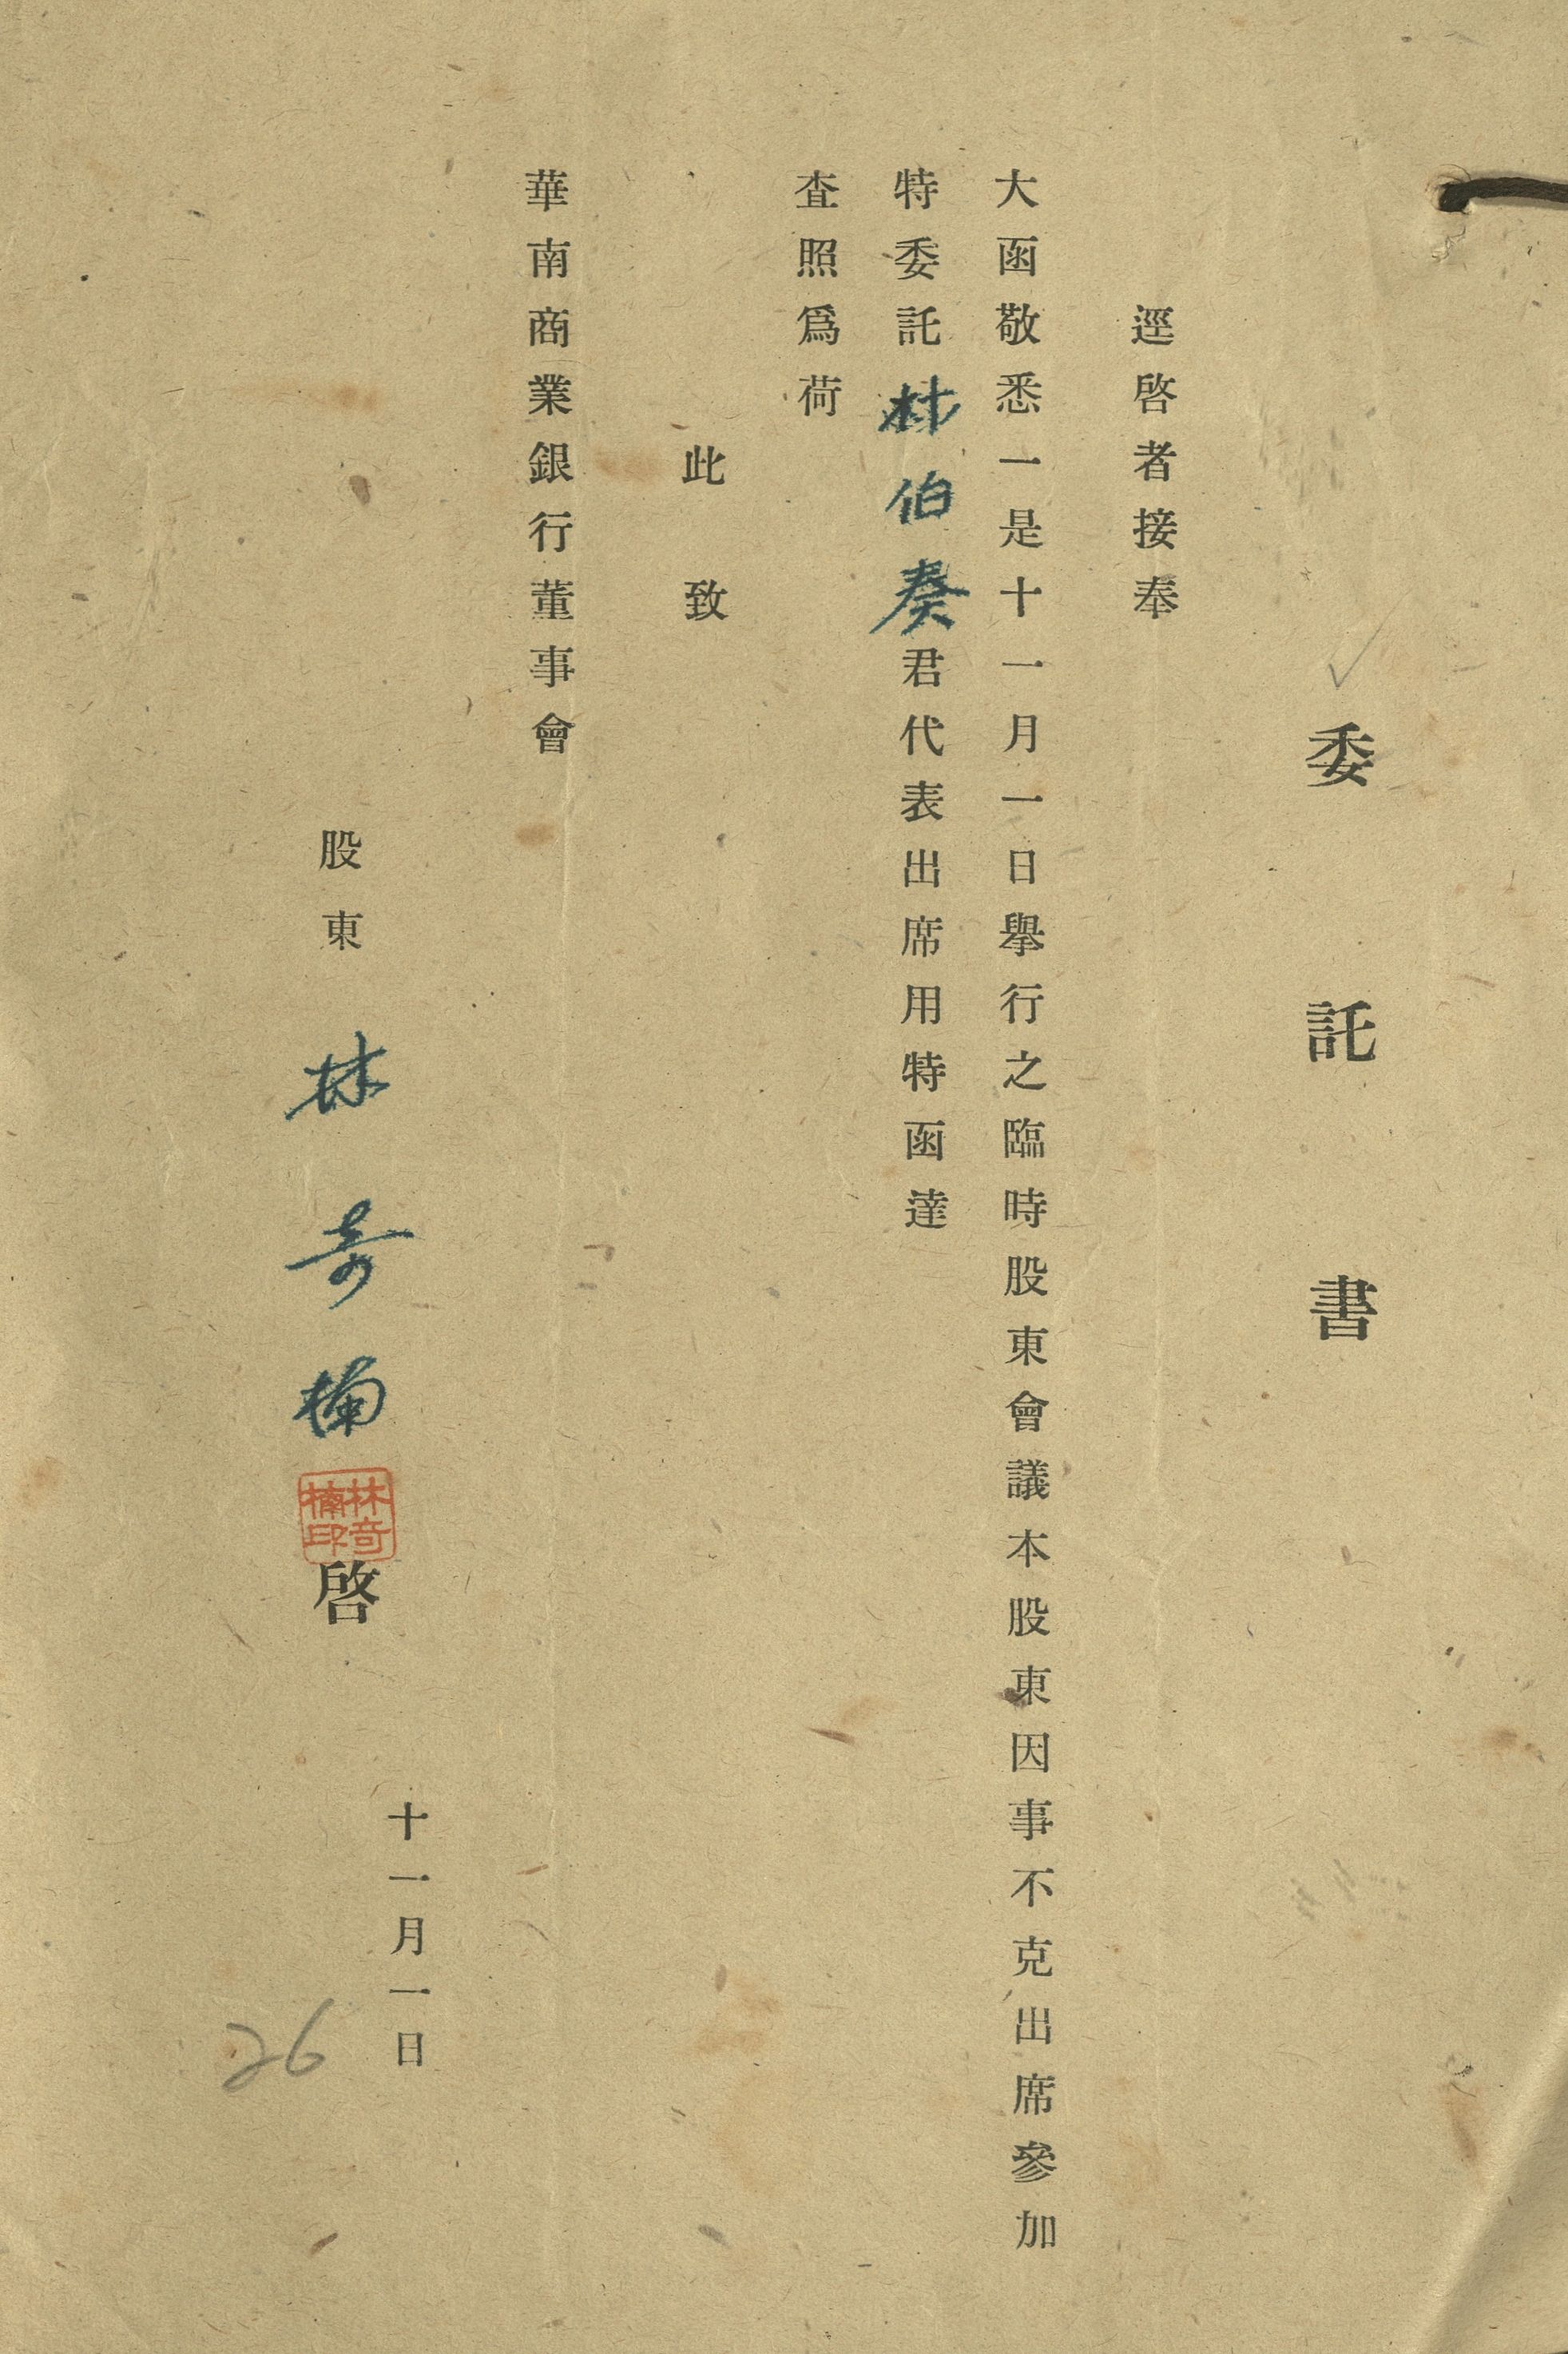 委託書
逕啓者接奉
大函敬悉一是十一月一日舉行之臨時股東會議本股東因事不克出席參加
特委託林伯奏君代表出席用特函達
查照爲荷
此致
華南商業銀行董事會
股東林奇楠啓
林奇
楠印
十一月一日
26